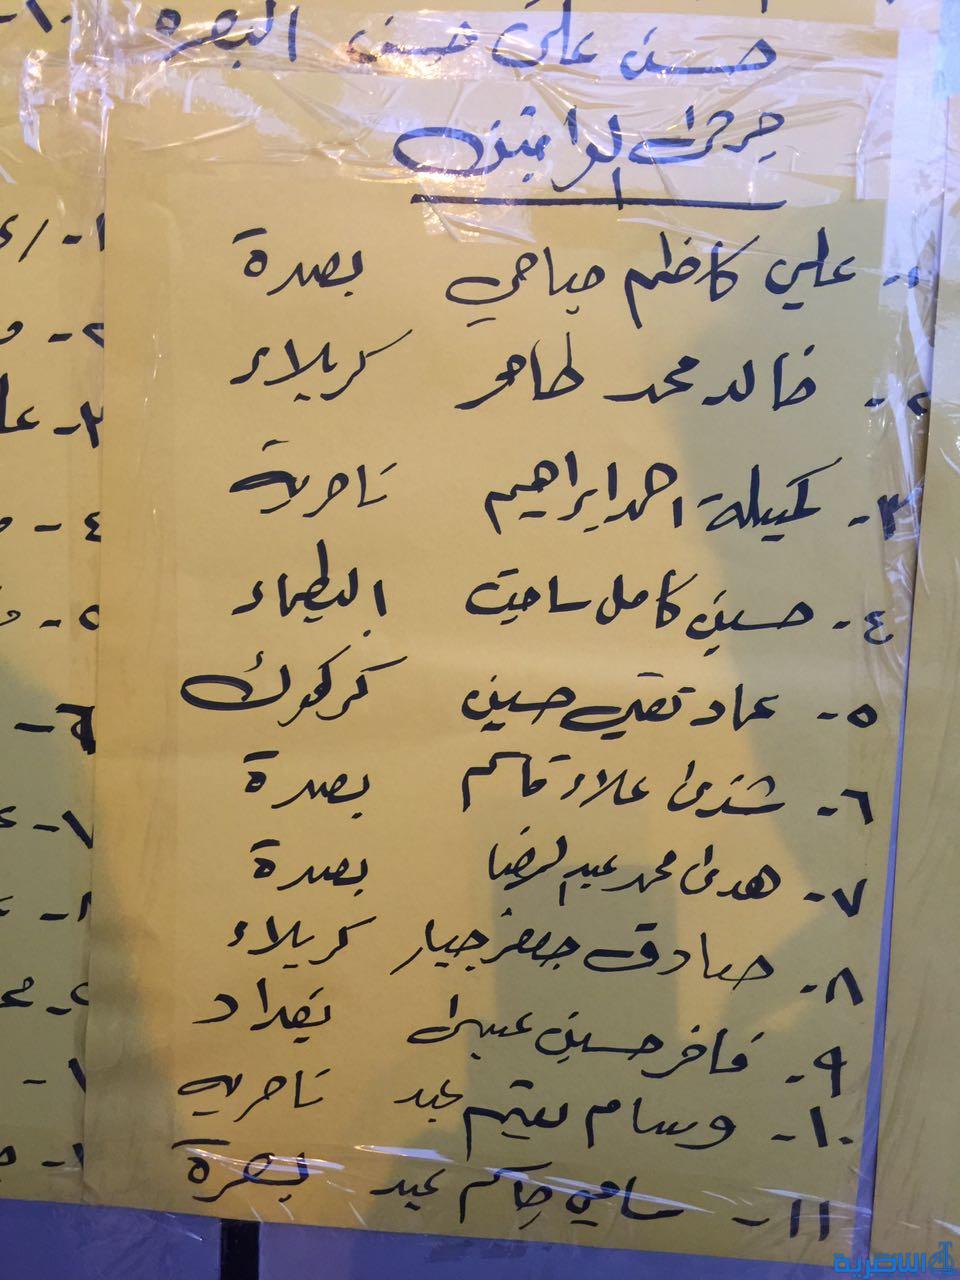 حسن علي حسن البصرة
جرحى
١- علي كاظم صباحي بصرة
٢- خالد محمد طاهر كربلاء
٣- كميلة احمد ابراهيم ناصرية
٤- حسين كامل ساجت البطحاء
٥- عماد تقي حسين كركوك
٦- شذى علاء قاسم بصرة
٧- هدى محمد عبد الرضا بصرة
٨- صادق جعفر جبار كربلاء
٩- فاخر حسين عيسى بغداد
١٠- وسام يتيم عبد ناصرية
١١- سامي جاسم عبد بصرة
الناصرية